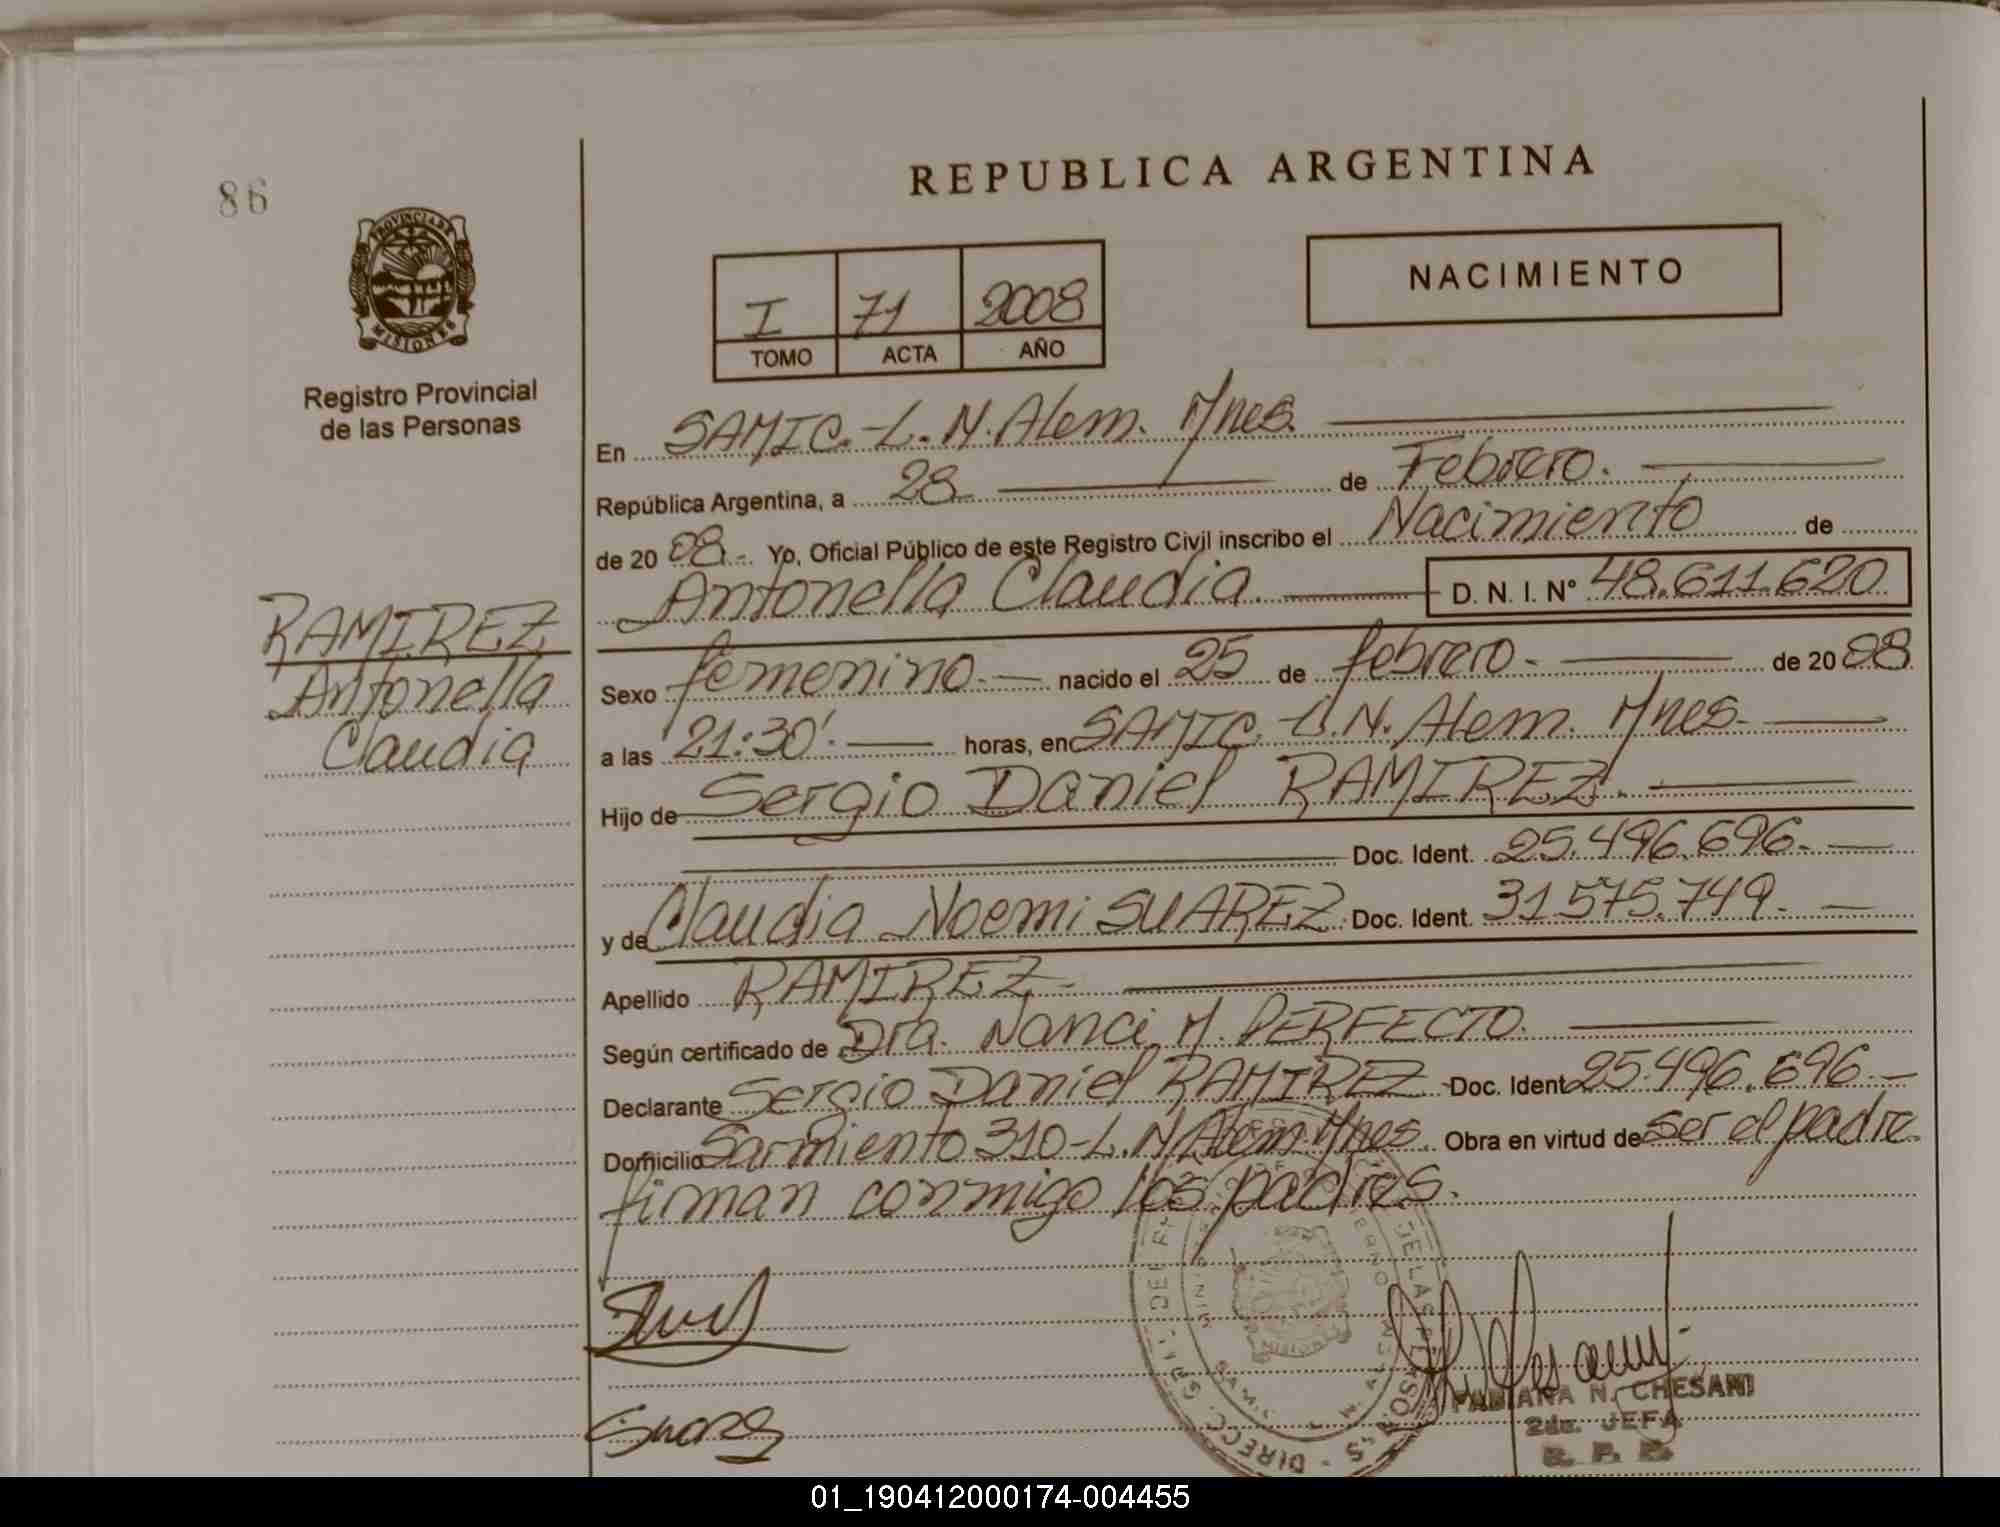 86
REPUBLICA ARGENTINA
PROVINCIA DE
MISIONES
Registro Provincial
de las Personas
I 71 2008
TOMO ACTA AÑO
NACIMIENTO
En SAMIC.-L.N.Alem. Mnes.
República Argentina, a 28 de Febrero.
de 20 08.- Yo, Oficial Público de este Registro Civil inscribo el Nacimiento de
Antonella Claudia. D. N. I. N° 48.611.620
RAMIREZ
Antonella
Claudia
Sexo femenino.- nacido el 25 de febrero.- de 20 08.
a las 21:30'. horas, en SAMIC. L.N. Alem. Mnes.
Hijo de Sergio Daniel RAMIREZ.
Doc. Ident. 25.496.696.-
y de Claudia Noemi SUAREZ Doc. Ident. 31.575.749.-
Apellido RAMIREZ.-
Según certificado de Dra. Nanci M. PERFECTO.
Declarante Sergio Daniel RAMIREZ Doc. Ident 25.496.696.-
Domicilio Sarmiento 310-L.N.Alem Mnes. Obra en virtud de ser el padre.
firman conmigo los padres.
Suarez
FABIANA N. CHESANI
2da. JEFA
R. P. P.
01_190412000174-004455